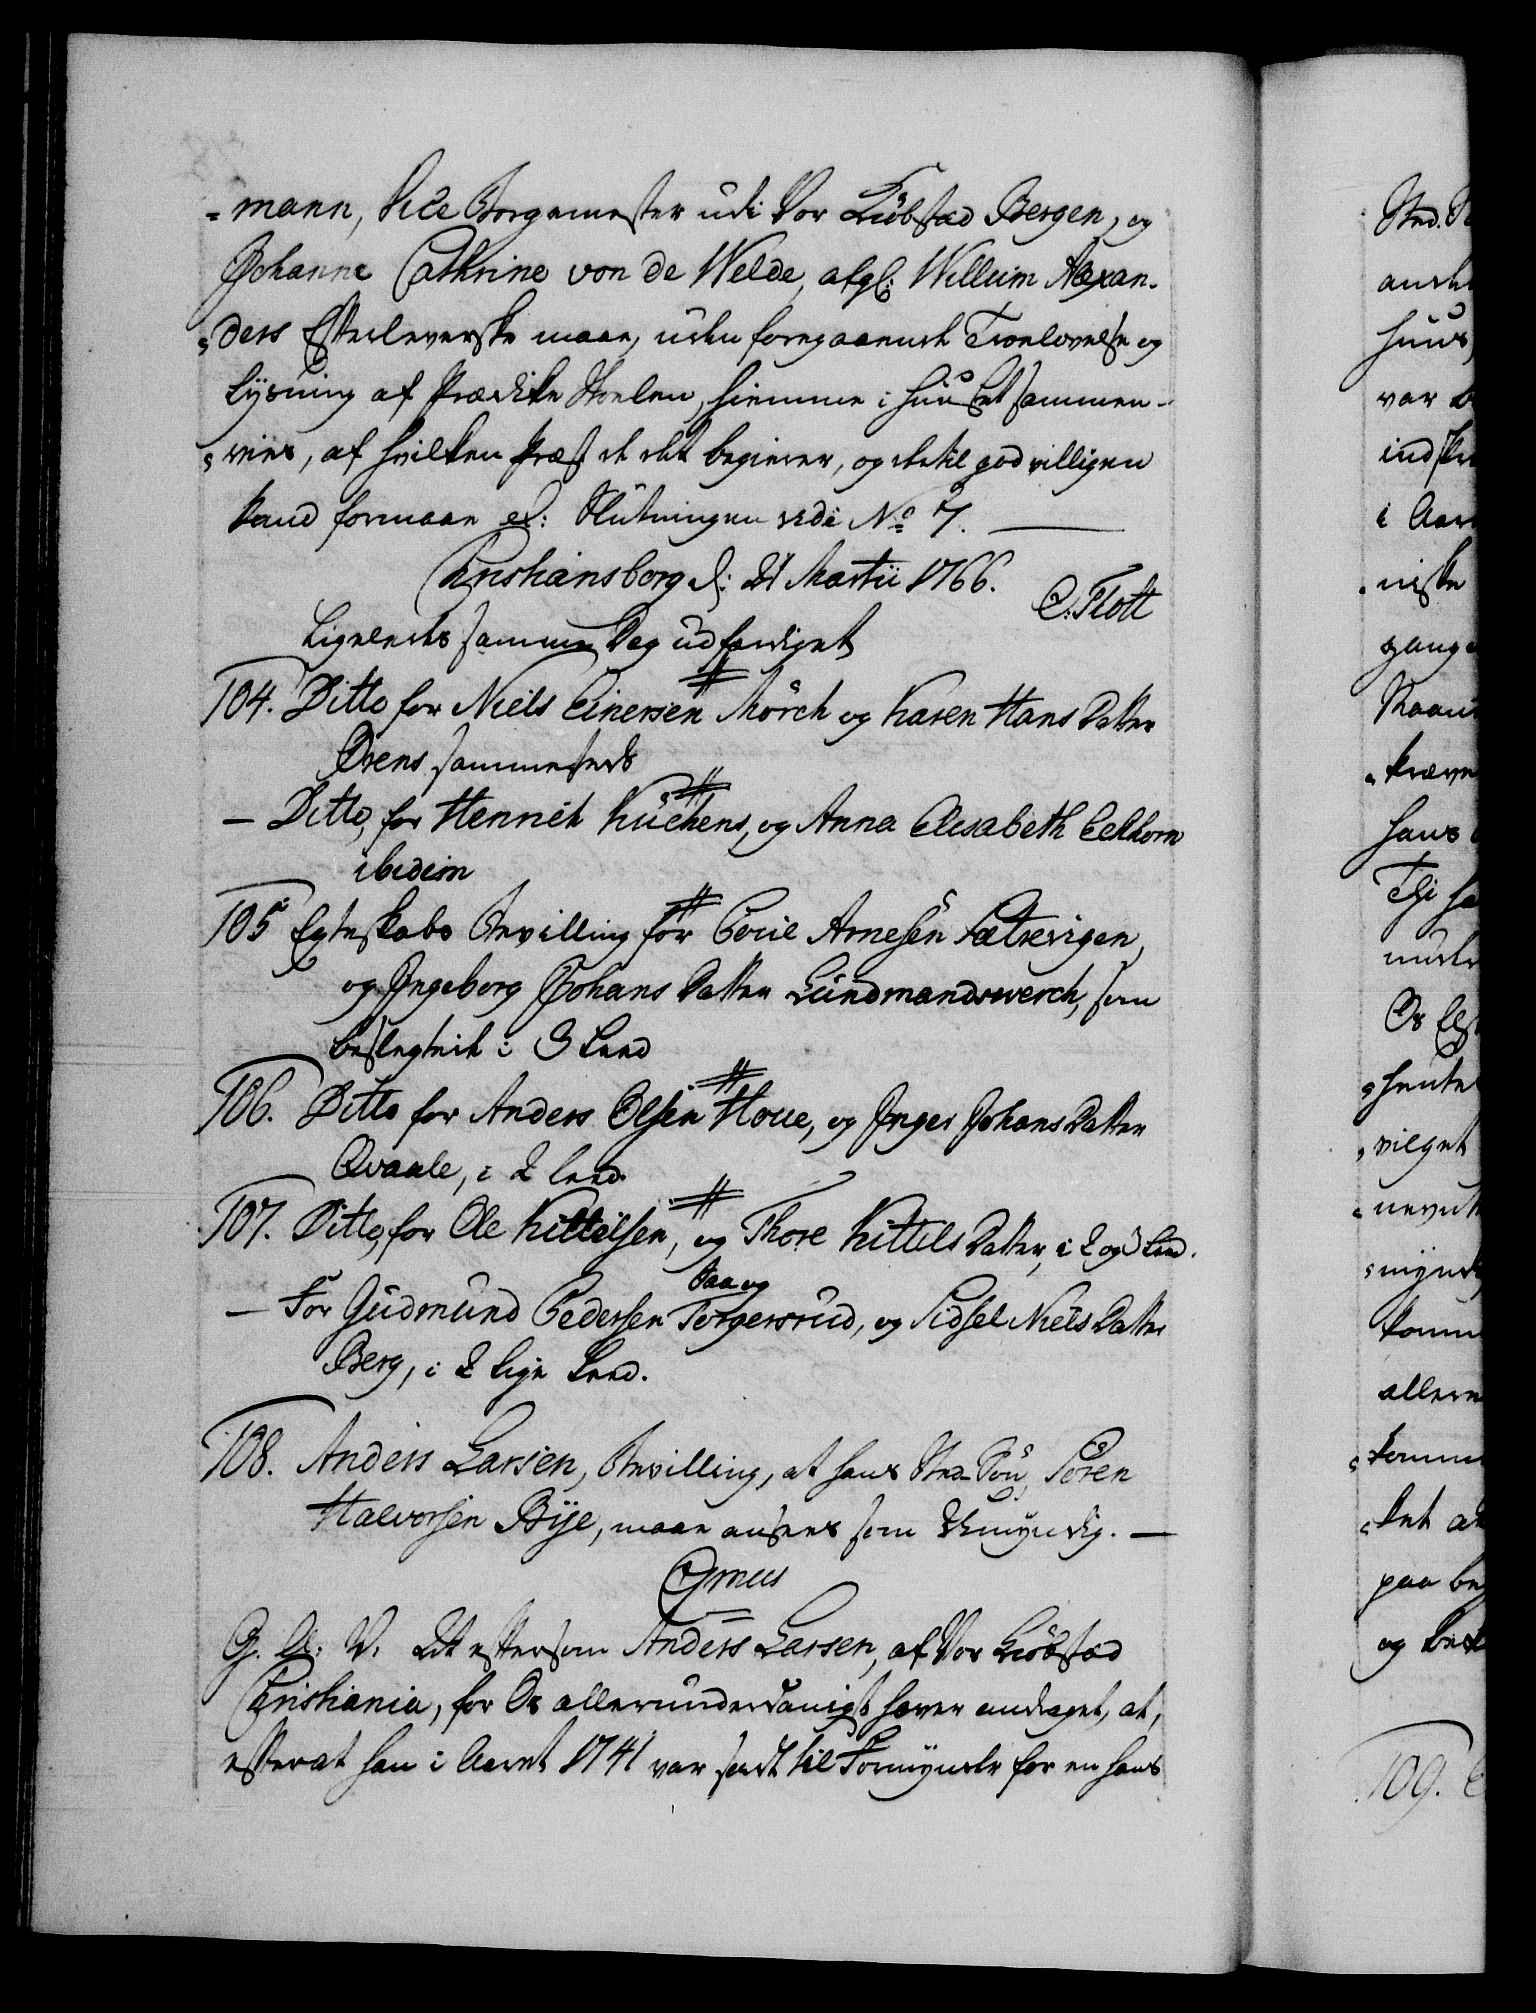 = mann, Vice Borgemester udi Vor Kiöbstæd Bergen, og
Johanne Cathrine von de Welde, afgl: Willum Alexan-
= ders Efterleverske maae, uden foregaaende Troelovelse og
Liysning af Prædike Stoelen, hiemme i Huuset sammen-
= vies, af hvilken Præst de det begierer, og dertil godvilligen
kand formaae etc: Slutningen vide No 7.
Christiansborg d: 21 Martii 1766.
C: Flott
Ligeledes samme Dag udfærdiget
104. Ditto for Niels Einersen Mörch og Karen Hans Datter
Örens sammesteds
— Ditto, for Henrich Küchens, og Anna Elisabeth Eekhorn
ibidem
105 Egteskabs Bevilling for Poul Arnesen Sætrevigen,
og Ingeborg Johans Datter Lundmandsverch, som
beslegtede i 3 Leed
106. Ditto for Anders Olsen Houe, og Inger Johans Datter
Qvaale, i 2 Leed.
107. Ditto, for Ole Kittelsen, og Thore Kittels Datter, i 2 og 3 Leed.
— For Gudmund Pedersen Taa og Torgersrud, og Sidsel Niels Datter
Berg, i 2 lige Leed.
108. Anders Larsen, Bevilling, at hans Sted-Søn, Sören
Halvorsen Bije, maae ansees som Umyndig. —
C. 7mus
G. A: V. At eftersom Anders Larsen, af Vor Kiöbstæd
Christiania, for Os allerunderdanigst haver andraget, at,
efterat han i Aaret 1741 var sadt til Formynder for en hans